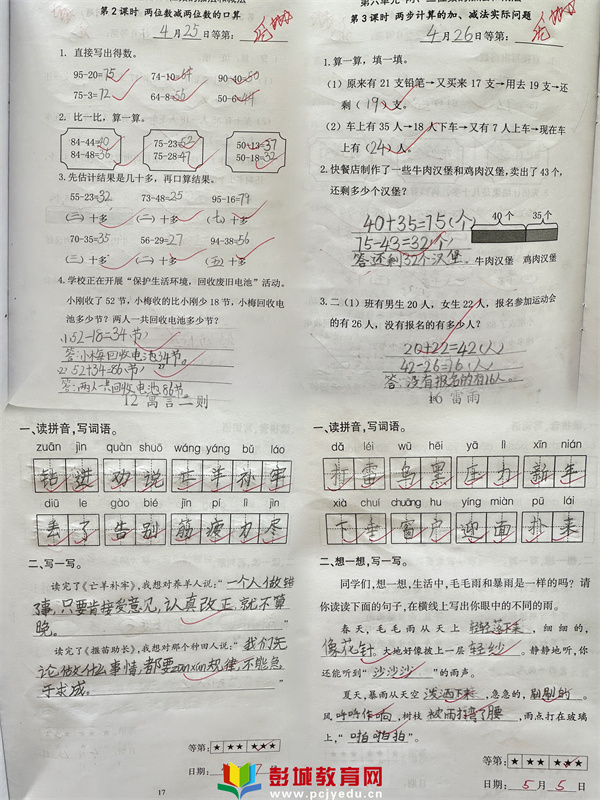 第2课时 两位数减两位数的口算
4月25日等第:
1. 直接写出得数。
95-20=75 74-10=64 90-40=50
75-3=72 64-8=56 50-6=44
2. 比一比,算一算。
84-44=40 75-23=52 50-13=37
84-48=36 75-28=47 50-18=32
3.先估计结果是几十多,再口算结果。
55-23=32 73-48=25 95-16=79
(三)十多 (二)十多 (七)十多
70-35=35 56-29=27 94-38=56
(三)十多 (二)十多 (五)十多
4.学校正在开展“保护生活环境,回收废旧电池”活动。
小刚收了 52 节,小梅收的比小刚少 18 节,小梅回收电
池多少节? 两人一共回收电池多少节?
1)52-18=34(节)
答:小梅回收电池34节。
2)52+34=86(节)
答:两人一共回收电池86节。
第3课时 两步计算的加、减法实际问题
4月26日等第:
1.算一算,填一填。
(1)原来有 21 支铅笔→又买来 17 支→用去 19 支→还
剩(19)支。
(2)车上有 35 人→18 人下车→又有 7 人上车→现在车
上有(24)人。
2.快餐店制作了一些牛肉汉堡和鸡肉汉堡,卖出了 43个,
还剩多少个汉堡?
40+35=75(个)
75-43=32(个)
答:还剩32个汉堡。
40个 35个
牛肉汉堡 鸡肉汉堡
3.二(1)班有男生 20 人,女生 22 人,报名参加运动会
的有 26 人,没有报名的有多少人?
20+22=42(人)
42-26=16(人)
答:没有报名的有16人。
12 寓言二则
一、读拼音,写词语。
zuān jìn quàn shuō wáng yáng bǔ láo
钻进 劝说 亡羊补牢
diū le gào bié jīn pí lì jìn
丢了 告别 筋疲力尽
二、写一写。
读完了《亡羊补牢》,我想对养羊人说:“一个人做错
了事,只要肯接受意见,认真改正,就不算
晚。
读完了《揠苗助长》,我想对那个种田人说:“我们无
论做什么事情,都要zūn xún规律,不能急
于求成。
等第:★ ★★ ★★★
日期:
17
16 雷雨
一、读拼音,写词语。
dǎ léi wū hēi yā lì xīn nián
打雷 乌黑 压力 新年
xià chuí chuāng hu yíng miàn pū lái
下垂 窗户 迎面 扑来
二、想一想,写一写。
同学们,想一想,生活中,毛毛雨和暴雨是一样的吗? 请
你读读下面的句子,在横线上写出你眼中的不同的雨。
春天,毛毛雨从天上轻轻落下来,细细的,
像花针。大地好像披上一层轻纱。静静地听,你
还能听到“沙沙沙”的雨声。
夏天,暴雨从天空泼洒下来,急急的,刷刷的。
风呼呼作响,树枝被雨打弯了腰,雨点打在玻璃
上,“啪啪啪”。
等第:★ ★★ ★★★
日期:5月5日
彭城教育网
www.pcjyedu.cn